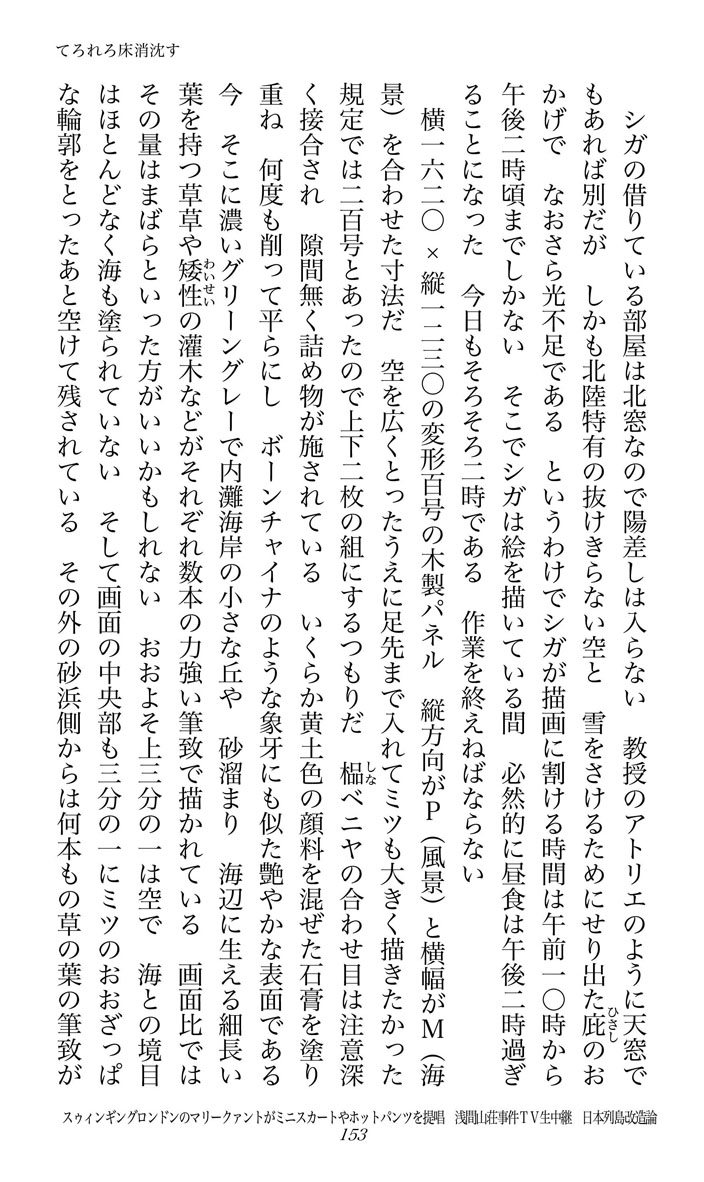 てろれろ床消沈す
シガの借りている部屋は北窓なので陽差しは入らない　教授のアトリエのように天窓で
もあれば別だが　しかも北陸特有の抜けきらない空と　雪をさけるためにせり出た庇のお
ひさし
かげで　なおさら光不足である　というわけでシガが描画に割ける時間は午前一〇時から
午後二時頃までしかない　そこでシガは絵を描いている間　必然的に昼食は午後二時過ぎ
ることになった　今日もそろそろ二時である　作業を終えねばならない
横一六二〇×縦一二三〇の変形百号の木製パネル　縦方向がＰ（風景）と横幅がＭ（海
景）を合わせた寸法だ　空を広くとったうえに足先まで入れてミツも大きく描きたかった
規定では二百号とあったので上下二枚の組にするつもりだ　榀ベニヤの合わせ目は注意深
しな
く接合され　隙間無く詰め物が施されている　いくらか黄土色の顔料を混ぜた石膏を塗り
重ね　何度も削って平らにし　ボーンチャイナのような象牙にも似た艶やかな表面である
今　そこに濃いグリーングレーで内灘海岸の小さな丘や　砂溜まり　海辺に生える細長い
葉を持つ草草や矮性の灌木などがそれぞれ数本の力強い筆致で描かれている　画面比では
わいせい
その量はまばらといった方がいいかもしれない　おおよそ上三分の一は空で　海との境目
はほとんどなく海も塗られていない　そして画面の中央部も三分の一にミツのおおざっぱ
な輪郭をとったあと空けて残されている　その外の砂浜側からは何本もの草の葉の筆致が
スゥィンギングロンドンのマリークァントがミニスカートやホットパンツを提唱　浅間山荘事件ＴＶ生中継　日本列島改造論
153